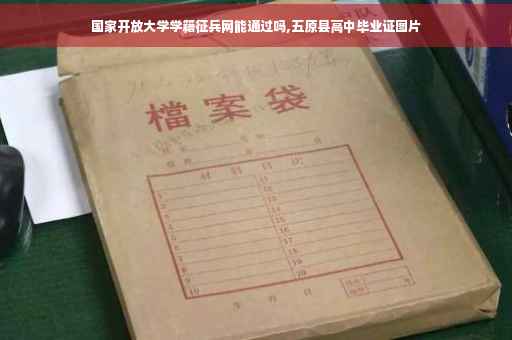 国家开放大学学籍征兵网能通过吗,五原县高中毕业证图片
檔案袋
材料目次
1 11
2 12
3 13
4 14
5 15
6 16
7 17
8 18
9 19
10 20
年 月 日